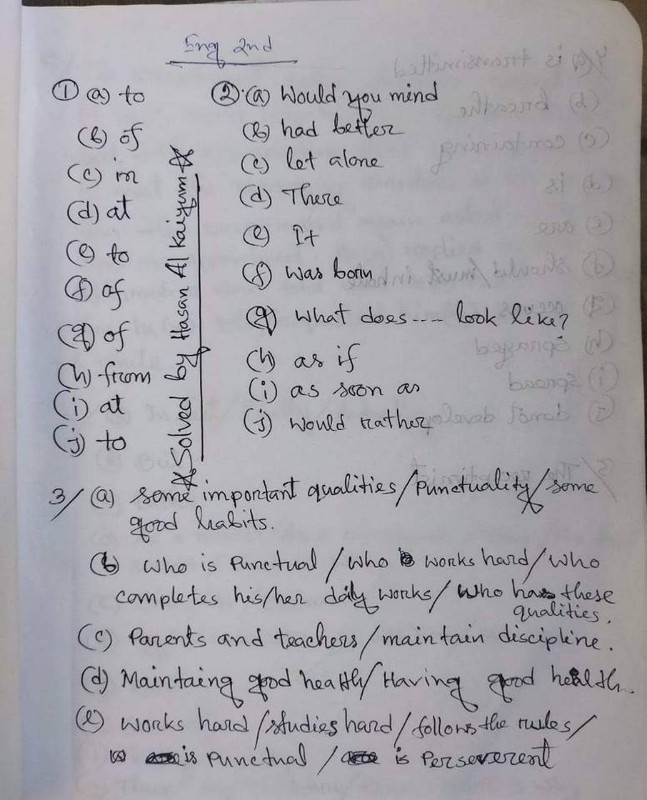 Eng 2nd
① a) to
(b) of
(c) in
(d) at
(e) to
(f) of
(g) of
(h) from
(i) at
(j) to
☆ Solved by Hasan Al Kaiyum ☆
②. (a) Would you mind
(b) had better
(c) let alone
(d) There
(e) It
(f) was born
(g) What does---- look like?
(h) as if
(i) as soon as
(j) would rather
3/ (a) some important qualities/Punctuality/some
good habits.
(b) who is Punctual/who works hard/who
completes his/her daily works/who has these
qualities.
(c) Parents and teachers/maintain discipline.
(d) Maintaing good health/Having good health.
(e) works hard/studies hard/follows the rules/
is Punctual/ is Perseverent